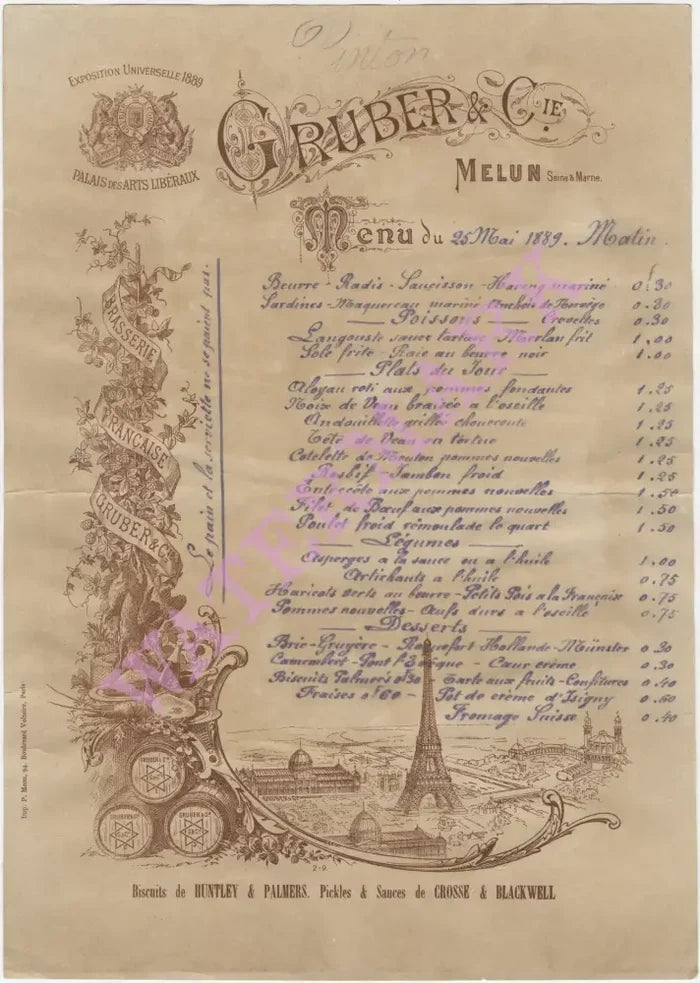 Vinton
EXPOSITION UNIVERSELLE 1889
PALAIS DES ARTS LIBÉRAUX
GRUBER & CIE.
MELUN Seine & Marne.
Menu du 25 Mai 1889. Matin.
Beurre - Radis - Saucisson - Hareng mariné 0f30
Sardines - Maquereau mariné Anchois de Norvège 0.30
Poissons - Crevettes 0.30
Langouste sauce tartare - Merlan frit 1.00
Sole frite - Raie au beurre noir 1.00
Plats du Jour
Aloyau roti aux pommes fondantes 1.25
Noix de Veau braisée a l'oseille 1.25
Andouillette grillée choucroute 1.25
Tête de Veau en tortue 1.25
Cotelette de Mouton pommes nouvelles 1.25
Rosbif - Jambon froid 1.25
Entrecôte aux pommes nouvelles 1.50
Filet de Bœuf aux pommes nouvelles 1.50
Poulet froid rémoulade le quart 1.50
Légumes
Asperges a la sauce ou a l'huile 1.00
Artichauts a l'huile 0.75
Haricots verts au beurre - Petits Pois a la Française 0.75
Pommes nouvelles - Œufs durs a l'oseille 0.75
Desserts
Brie - Gruyère - Roquefort Hollande - Münster 0.30
Camembert - Pont l'Evêque - Cœur crème 0.30
Biscuits Palmers 0f30 - Tarte aux fruits - Confitures 0.40
Fraises 0f60 - Pot de crème d'Isigny 0.60
Fromage Suisse 0.40
Le pain et la serviette ne se paient pas.
BRASSERIE
FRANÇAISE
GRUBER & Cie
GRUBER & Cie
GRUBER & Cie
GRUBER & Cie
Imp. P. Mens, 94, Boulevard Voltaire, Paris
2-9.
Biscuits de HUNTLEY & PALMERS. Pickles & Sauces de CROSSE & BLACKWELL